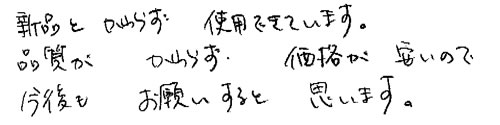 新品と かわらず 使用できています。
品質が かわらず、 価格が 安いので
今後も お願いすると 思います。